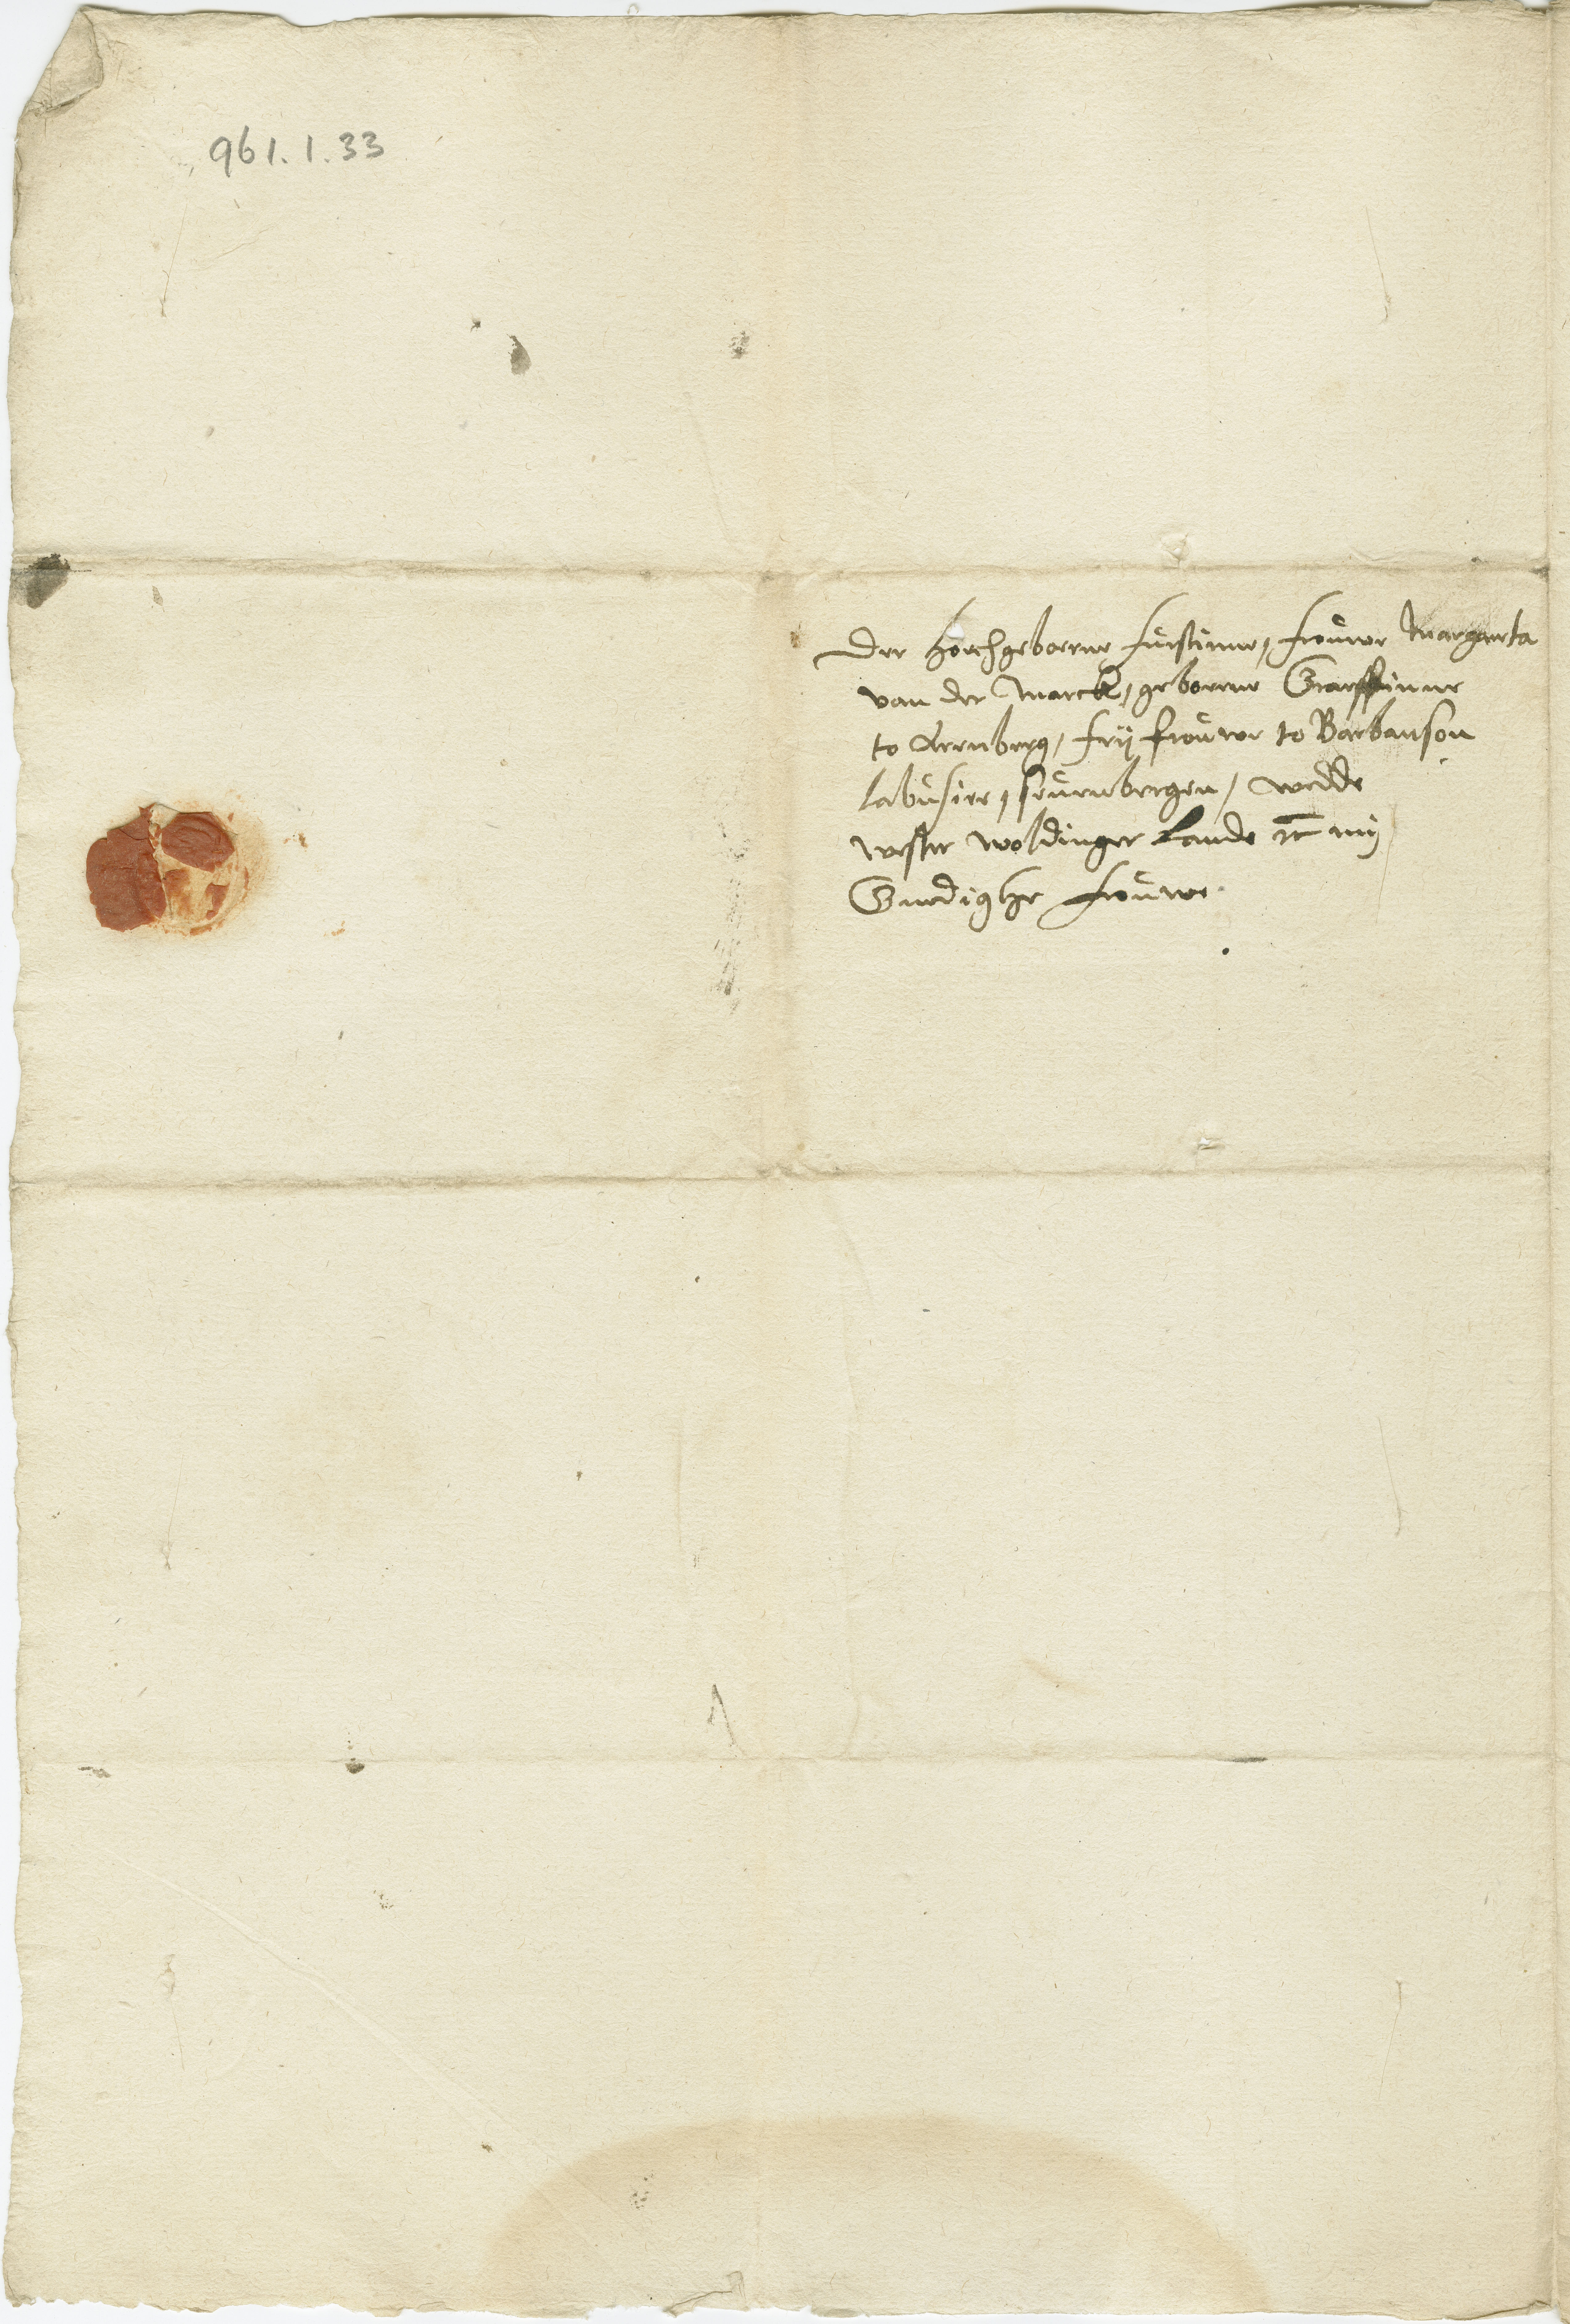 961.1.33
Der hoechgeborne furstinne, frouwe Margareta
van der Marck, geborene Graeffinne
to Arenberg, frij frouwe to Barbanson
labusier, seuenbergen, wedde
wester woldinger Lande etc mij
Gnedighe frouwe.